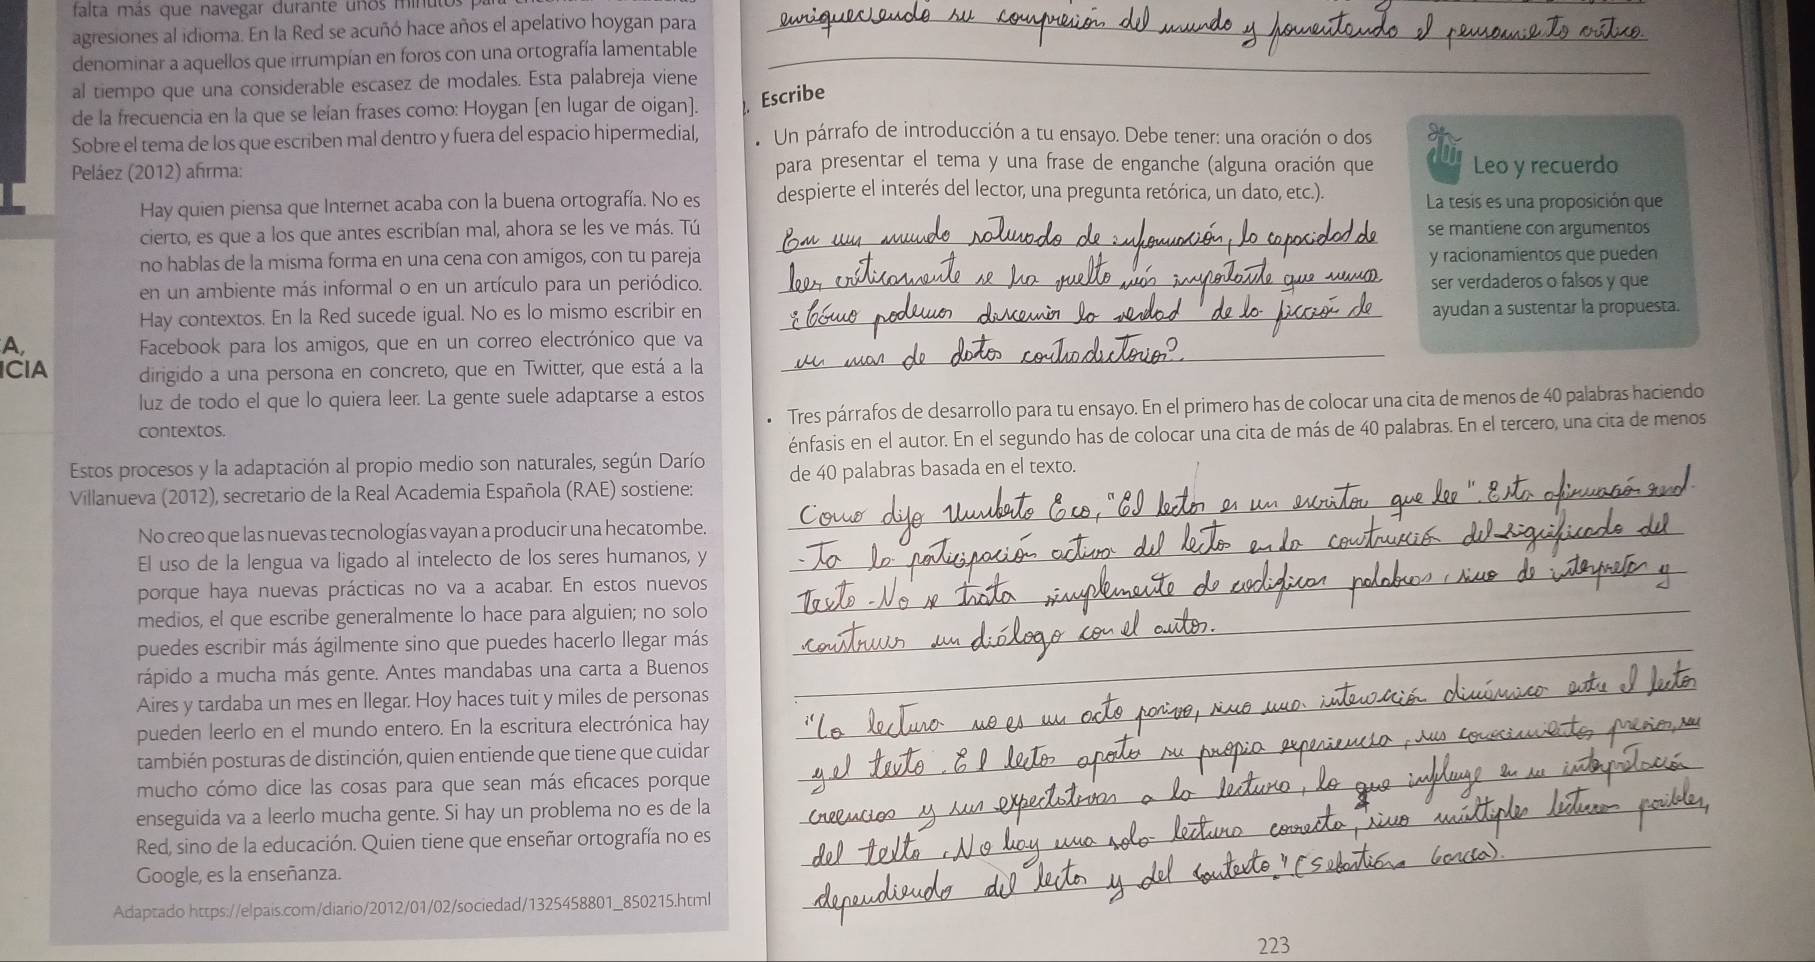 falta más que navegar durante unos minutos
agresiones al idioma. En la Red se acuñó hace años el apelativo hoygan para
denominar a aquellos que irrumpían en foros con una ortografía lamentable
al tiempo que una considerable escasez de modales. Esta palabreja viene
de la frecuencia en la que se leían frases como: Hoygan [en lugar de oigan].
Sobre el tema de los que escriben mal dentro y fuera del espacio hipermedial,
Peláez (2012) afirma:
Hay quien piensa que Internet acaba con la buena ortografía. No es
cierto, es que a los que antes escribían mal, ahora se les ve más. Tú
no hablas de la misma forma en una cena con amigos, con tu pareja
en un ambiente más informal o en un artículo para un periódico.
Hay contextos. En la Red sucede igual. No es lo mismo escribir en
Facebook para los amigos, que en un correo electrónico que va
dirigido a una persona en concreto, que en Twitter, que está a la
luz de todo el que lo quiera leer. La gente suele adaptarse a estos
contextos.
Estos procesos y la adaptación al propio medio son naturales, según Darío
Villanueva (2012), secretario de la Real Academia Española (RAE) sostiene:
No creo que las nuevas tecnologías vayan a producir una hecatombe.
El uso de la lengua va ligado al intelecto de los seres humanos, y
porque haya nuevas prácticas no va a acabar. En estos nuevos
medios, el que escribe generalmente lo hace para alguien; no solo
puedes escribir más ágilmente sino que puedes hacerlo llegar más
rápido a mucha más gente. Antes mandabas una carta a Buenos
Aires y tardaba un mes en llegar. Hoy haces tuit y miles de personas
pueden leerlo en el mundo entero. En la escritura electrónica hay
también posturas de distinción, quien entiende que tiene que cuidar
mucho cómo dice las cosas para que sean más eficaces porque
enseguida va a leerlo mucha gente. Si hay un problema no es de la
Red, sino de la educación. Quien tiene que enseñar ortografía no es
Google, es la enseñanza.
Adaptado https://elpais.com/diario/2012/01/02/sociedad/1325458801_850215.html
A,
ICIA
enriqueciendo su compresión del mundo y fomentando el pensamiento crítico.
Escribe
• Un párrafo de introducción a tu ensayo. Debe tener: una oración o dos
para presentar el tema y una frase de enganche (alguna oración que
despierte el interés del lector, una pregunta retórica, un dato, etc.).
En un mundo saturado de información, la capacidad de
leer críticamente se ha vuelto más importante que nunca
¿Cómo podemos discernir la verdad de la ficción de
un mar de datos contradictorios?
Leo y recuerdo
La tesis es una proposición que
se mantiene con argumentos
y racionamientos que pueden
ser verdaderos o falsos y que
ayudan a sustentar la propuesta.
• Tres párrafos de desarrollo para tu ensayo. En el primero has de colocar una cita de menos de 40 palabras haciendo
énfasis en el autor. En el segundo has de colocar una cita de más de 40 palabras. En el tercero, una cita de menos
de 40 palabras basada en el texto.
Como dijo Umberto Eco, "El lector es un escritor que lee". Esta afirmación
ta la participación activa del lector en la construcción del significado del
texto. No se trata simplemente de codificar palabras, sino de interpretar y
construir un diálogo con el autor.
"La lectura no es un acto pasivo, sino una interacción dinámico entre el lector
y el texto. El lector aporta su propia experiencia, sus conocimientos previos, sus
creencias y sus expectativas a la lectura, lo que influye en su interpretación
del texto. No hay una sola lectura correcta, sino múltiples lecturas posibles,
dependiendo del lector y del contexto."
223